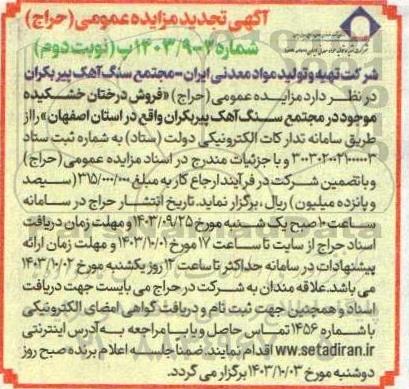 آگهی تجدید مزایده عمومی (حراج)
شماره ۲-۱۴۰۳/۹ب (نوبت دوم)
شرکت تهیه و تولید مواد معدنی ایران-مجتمع سنگ آهک پیربکران
در نظر دارد مزایده عمومی (حراج) «فروش درختان خشکیده
موجود در مجتمع سنگ آهک پیربکران واقع در استان اصفهان» را از
طریق سامانه تدارکات الکترونیکی دولت (ستاد) به شماره ثبت ستاد
۳۰۰۳۰۰۲۰۰۲۱۰۰۰۰۰۳ و با جزئیات مندرج در اسناد مزایده عمومی (حراج)
و با تضمین شرکت در فرآیند ارجاع کار به مبلغ ۳۱۵/۰۰۰/۰۰۰ (سیصد
و پانزده میلیون) ریال، برگزار نماید. تاریخ انتشار حراج در سامانه
ساعت ۱۰ صبح یک شنبه مورخ ۱۴۰۳/۰۹/۲۵ و مهلت زمان دریافت
اسناد حراج از سایت تا ساعت ۱۷ مورخ ۱۴۰۳/۱۰/۰۱ و مهلت زمان ارائه
پیشنهادات در سامانه حداکثر تا ساعت ۱۲ روز یکشنبه مورخ ۱۴۰۳/۱۰/۰۲
می باشد. علاقه مندان به شرکت در حراج می بایست جهت دریافت
اسناد و همچنین جهت ثبت نام و دریافت گواهی امضای الکترونیکی
با شماره ۱۴۵۶ تماس حاصل و یا با مراجعه به آدرس اینترنتی
ww.setadiran.ir اقدام نمایند. ضمنا جلسه اعلام برنده صبح روز
دوشنبه مورخ ۱۴۰۳/۱۰/۰۳ برگزار می گردد.